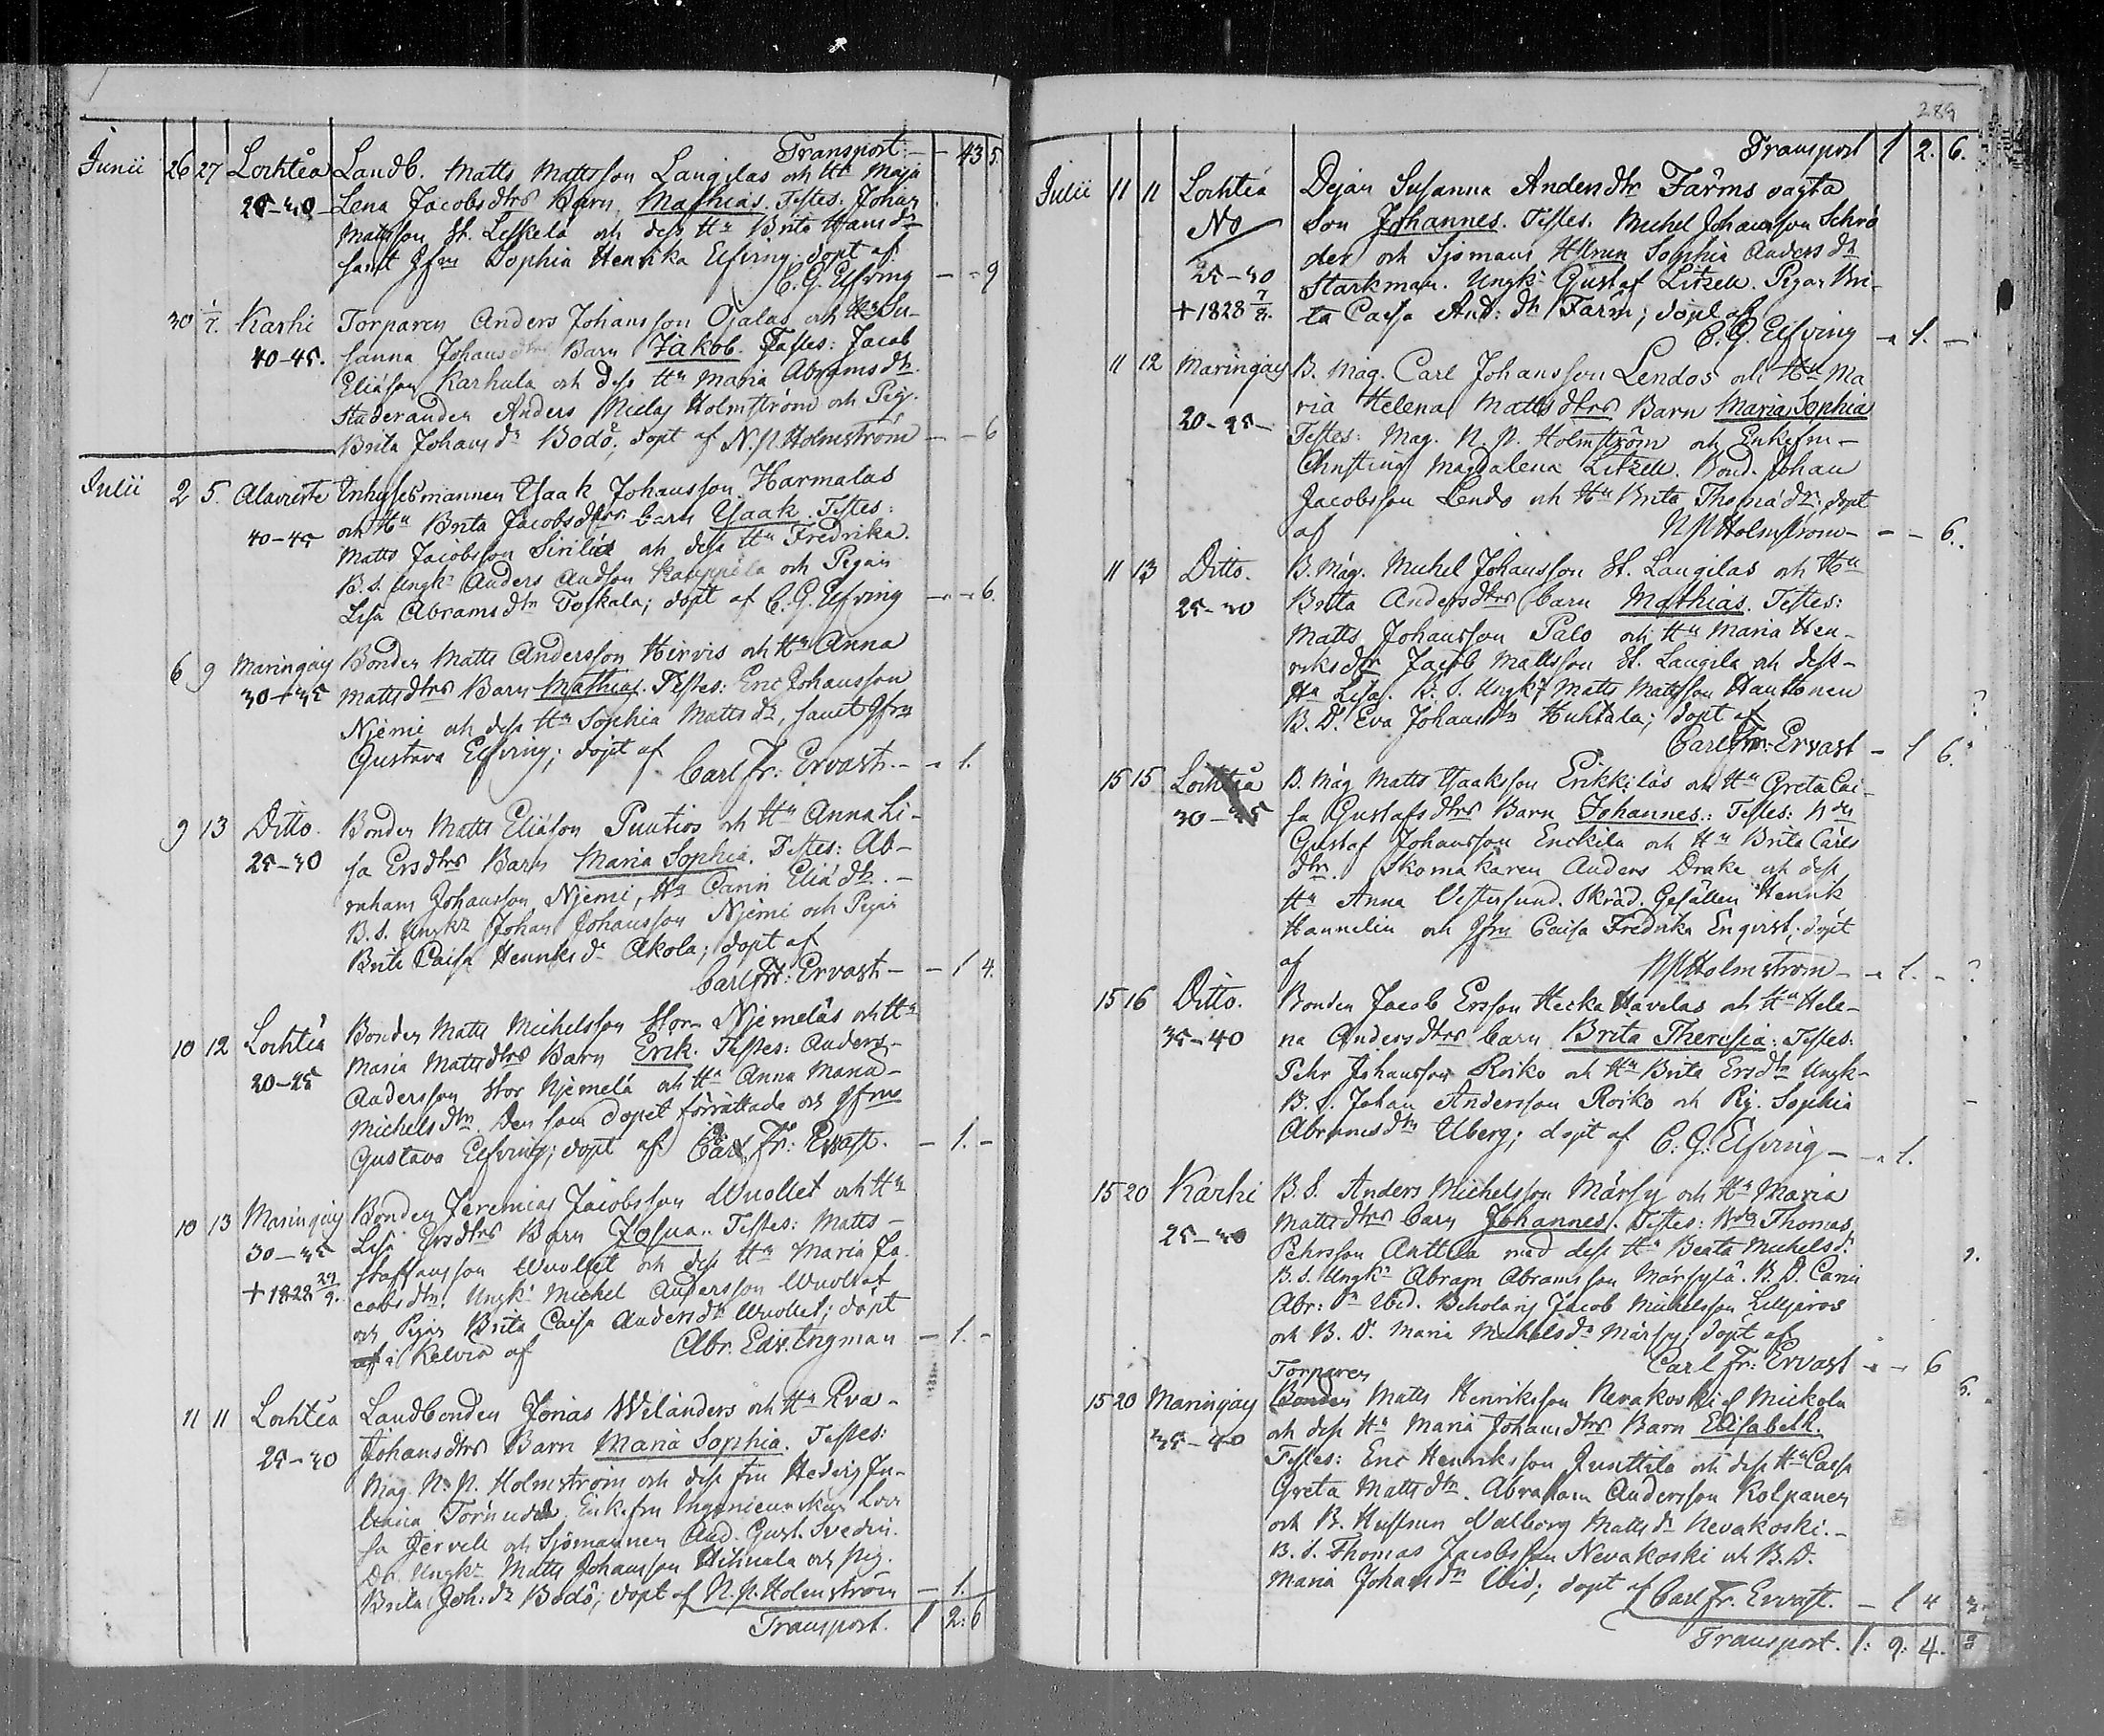 Transport: — 43 5.
Junii 26 27 Lochteå Landb. Matts Mattsson Laugilas och Hu Maja
25-30 Lena Jacobsdtrs Barn Mathias. Testes: Johan
Mattsson St. Leskelä och dess Hu Brita Hansdr
samt Jfru Sophia Henrika Elfving; döpt af
C. G. Elfving — - 9
30 1/7. Karhi Torparen Anders Johansson Ojalas och Hu Su-
40-45. sanna Johansdtrs Barn Jakob. Testes: Jacob
Eliäson Karhula och dess Hu Maria Abramsdtr.
Studeranden Anders Niclas Holmström och Pig.
Brita Johansdr Bodö; döpt af N. N. Holmström — - 6
Julii 2 5. Alaviirte Inhysesmannen Isaak Johansson Harmalas
40-45 och Hu Brita Jacobsdtrs barn Isaak. Testes:
Matts Jacobsson Siriliä och dess Hu Fredrika.
B. S. Ungk: Anders Andsson Kauppila och Pigan
Lisa Abramsdtr Toskala; döpt af C. G. Elfving — - 6.
6 9 Maringais Bonden Matts Andersson Hirvis och Hu Anna
30-35 Mattsdtrs Barn Mathias. Testes: Eric Johansson
Njemi och dess Hu Sophia Mattsdr, samt Jfru
Gustava Elfving; döpt af
Carl Fr: Ervast. — - 1.
9 13 Ditto. Bonden Matts Eliäson Puutios och Hu Anna Li-
25-30 sa Ersdtrs Barn Maria Sophia. Testes: Ab-
raham Johansson Njemi, Hu Carin Eliädtr. —
B. S. Ungkr Johan Johansson Njemi och Pigan
Brita Caisa Henriksdr Akola; döpt af
Carl Fr: Ervast — - 1 4.
10 12 Lochteå Bonden Matts Michelsson Stor-Njemeläs och Hu
20-25 Maria Mattsdtrs Barn Erik. Testes: Anders
Andersson Stor Njemelä och Hu Anna Maria
Michelsdtr. Den som dopet förrättade och Jfru
Gustava Elfving; döpt af Carl Fr: Ervast. — 1. -
10 13 Maringais Bonden Jeremias Jacobsson Wuollet och Hu
30-35 Lisa Ersdtrs Barn Josua. Testes: Matts
Staffansson Wuollet och dess Hu Maria Ja-
+1828 29/9. cobsdtr. Ungk: Michel Andersson Wuollet
och Pigan Brita Caisa Andersdr Wuollet; döpt
af i Kelviå af Abr. Edv. Engman — 1. -
11 11 Lochteå Landbonden Jonas Wiländers och Hu Eva
25-30 Johansdtrs Barn Maria Sophia. Testes:
Mag. N. N. Holmström och dess fru Hedvig Ju-
liana Törnudd. Enk.fru Ingenieurskan Lovi
sa Jervell och Sjömannen And. Gust. Svedin.
Dr. Ungkr Matts Johansson Hihnala och Pig.
Brita Joh: dr Bodö; döpt af N. N. Holmström — 1.
Transport. 1 2: 6
289
Transport 1 2. 6.
Julii 11 11 Lochteå Pejan Susanna Andersdtr Färms oägta
No son Johannes. Testes. Michel Johansson Schrö
der och Sjömans Hustrun Sophia Andersdtr
25-30 Starkman. Ungk: Gustaf Litzell. Pigan Bri-
+1828 7/8. ta Caisa And: dr Färm; döpt af
C. G. Elfving - 1. —
11 12 Maringais B. Måg. Carl Johansson Lendos och Hu Ma
20-25 ria Helena Mattsdtrs Barn Maria Sophia
Testes: Mag. N. N. Holmström och Enkefru
Christina Magdalena Litzell. Bond. Johan
Jacobsson Lendo och Hu Brita Thomädr; döpt
af N. N. Holmström — - - 6.
11 13 Ditto. B. Måg. Michel Johansson St. Laugilas och Hu
25-30 Brita Andersdtrs barn Mathias. Testes:
Matts Johansson Palo och Hu Maria Hen-
riksdtr Jacob Mattsson St. Laugila och dess
Hu Lisa. B. S. Ungk: Matts Mattsson Hautonen
B. D. Eva Johansdtr Huhtala; döpt af
Carl Fr: Ervast - 1 6.
15 15 Lochteå B. Måg Matts Isaaksson Erikkiläs och Hu Greta Cai-
30-35 sa Gustafsdtrs Barn Johannes: Testes: Bden
Gustaf Johansson Erickila och Hu Brita Carls
dtr. Skomakaren Anders Drake och dess
Hu Anna Vestersund. Skräd. Gesällen Henrik
Hannelin och Jfru Caisa Fredrika Enqvist; döpt
af N. N. Holmström - - 1. -
15 16 Ditto. Bonden Jacob Ersson Hecka Havelas och Hu Hele-
35-40 na Andersdtrs barn Brita Theresia: Testes:
Pehr Johansson Roiko och Hu Brita Ersdtr Ungk
B. S. Johan Andersson Roiko och Pig. Sophia
Abramsdtr Uberg; döpt af C. G. Elfving — - 1.
15 20 Karhi B. S. Anders Michelsson Märsy och Hu Maria
25-30 Mattsdtrs barn Johannes. Testes: Bden Thomas
Pehrsson Anttila med dess Hu Beata Michelsdr.
B. S. Ungkr Abram Abramsson Märsylä. B. D. Carin
Abr: dr Ibid. Scholaris Jacob Michelsson Liljeros
och B. D. Maria Michelsdr Märsy; döpt af
Carl Fr: Ervast - - 6
Torparen
15 20 Maringais Bonden Matts Henriksson Nevakoski Mickola
35-40 och dess Hu Maria Johansdtrs Barn Elisabeth.
Testes: Eric Henriksson Junttila och dess Hu Caisa
Greta Mattsdtr. Abraham Andersson Kolpanen
och B. Hustrun Valborg Mattsdr Nevakoski. —
B. S. Thomas Jacobsson Nevakoski och B. D.
Maria Johansdtr Ibid; döpt af Carl Fr. Ervast. — 1 4
Transport. 1: 9: 4.